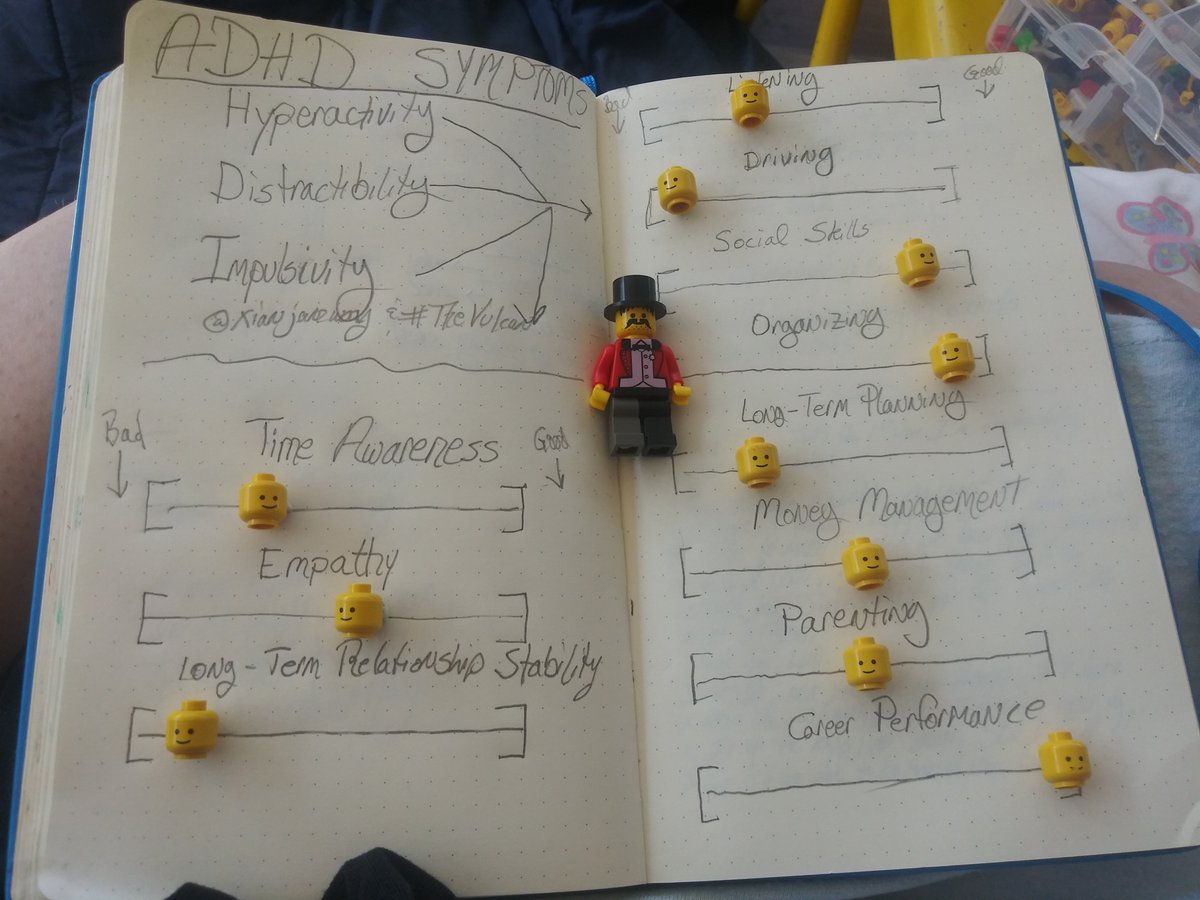 ADHD SYMPTOMS
Hyperactivity
Distractibility
Impulsivity
& #TheVulcan
Bad
Time Awareness
Good
Empathy
Long-Term Relationship Stability
Bad
Listening
Good
Driving
Social Skills
Organizing
Long-Term Planning
Money Management
Parenting
Career Performance